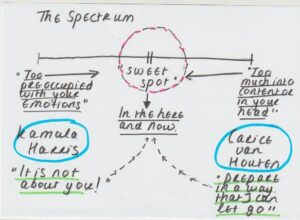 The Spectrum
"Too
preoccupied
with your
emotions"
"sweet
spot"
"Too
much into
content or
in your
head"
In the here
and now.
Kamala
Harris
Carice
van
Houten
"It is not
about you!"
"prepare
in a way
that I can
let go"